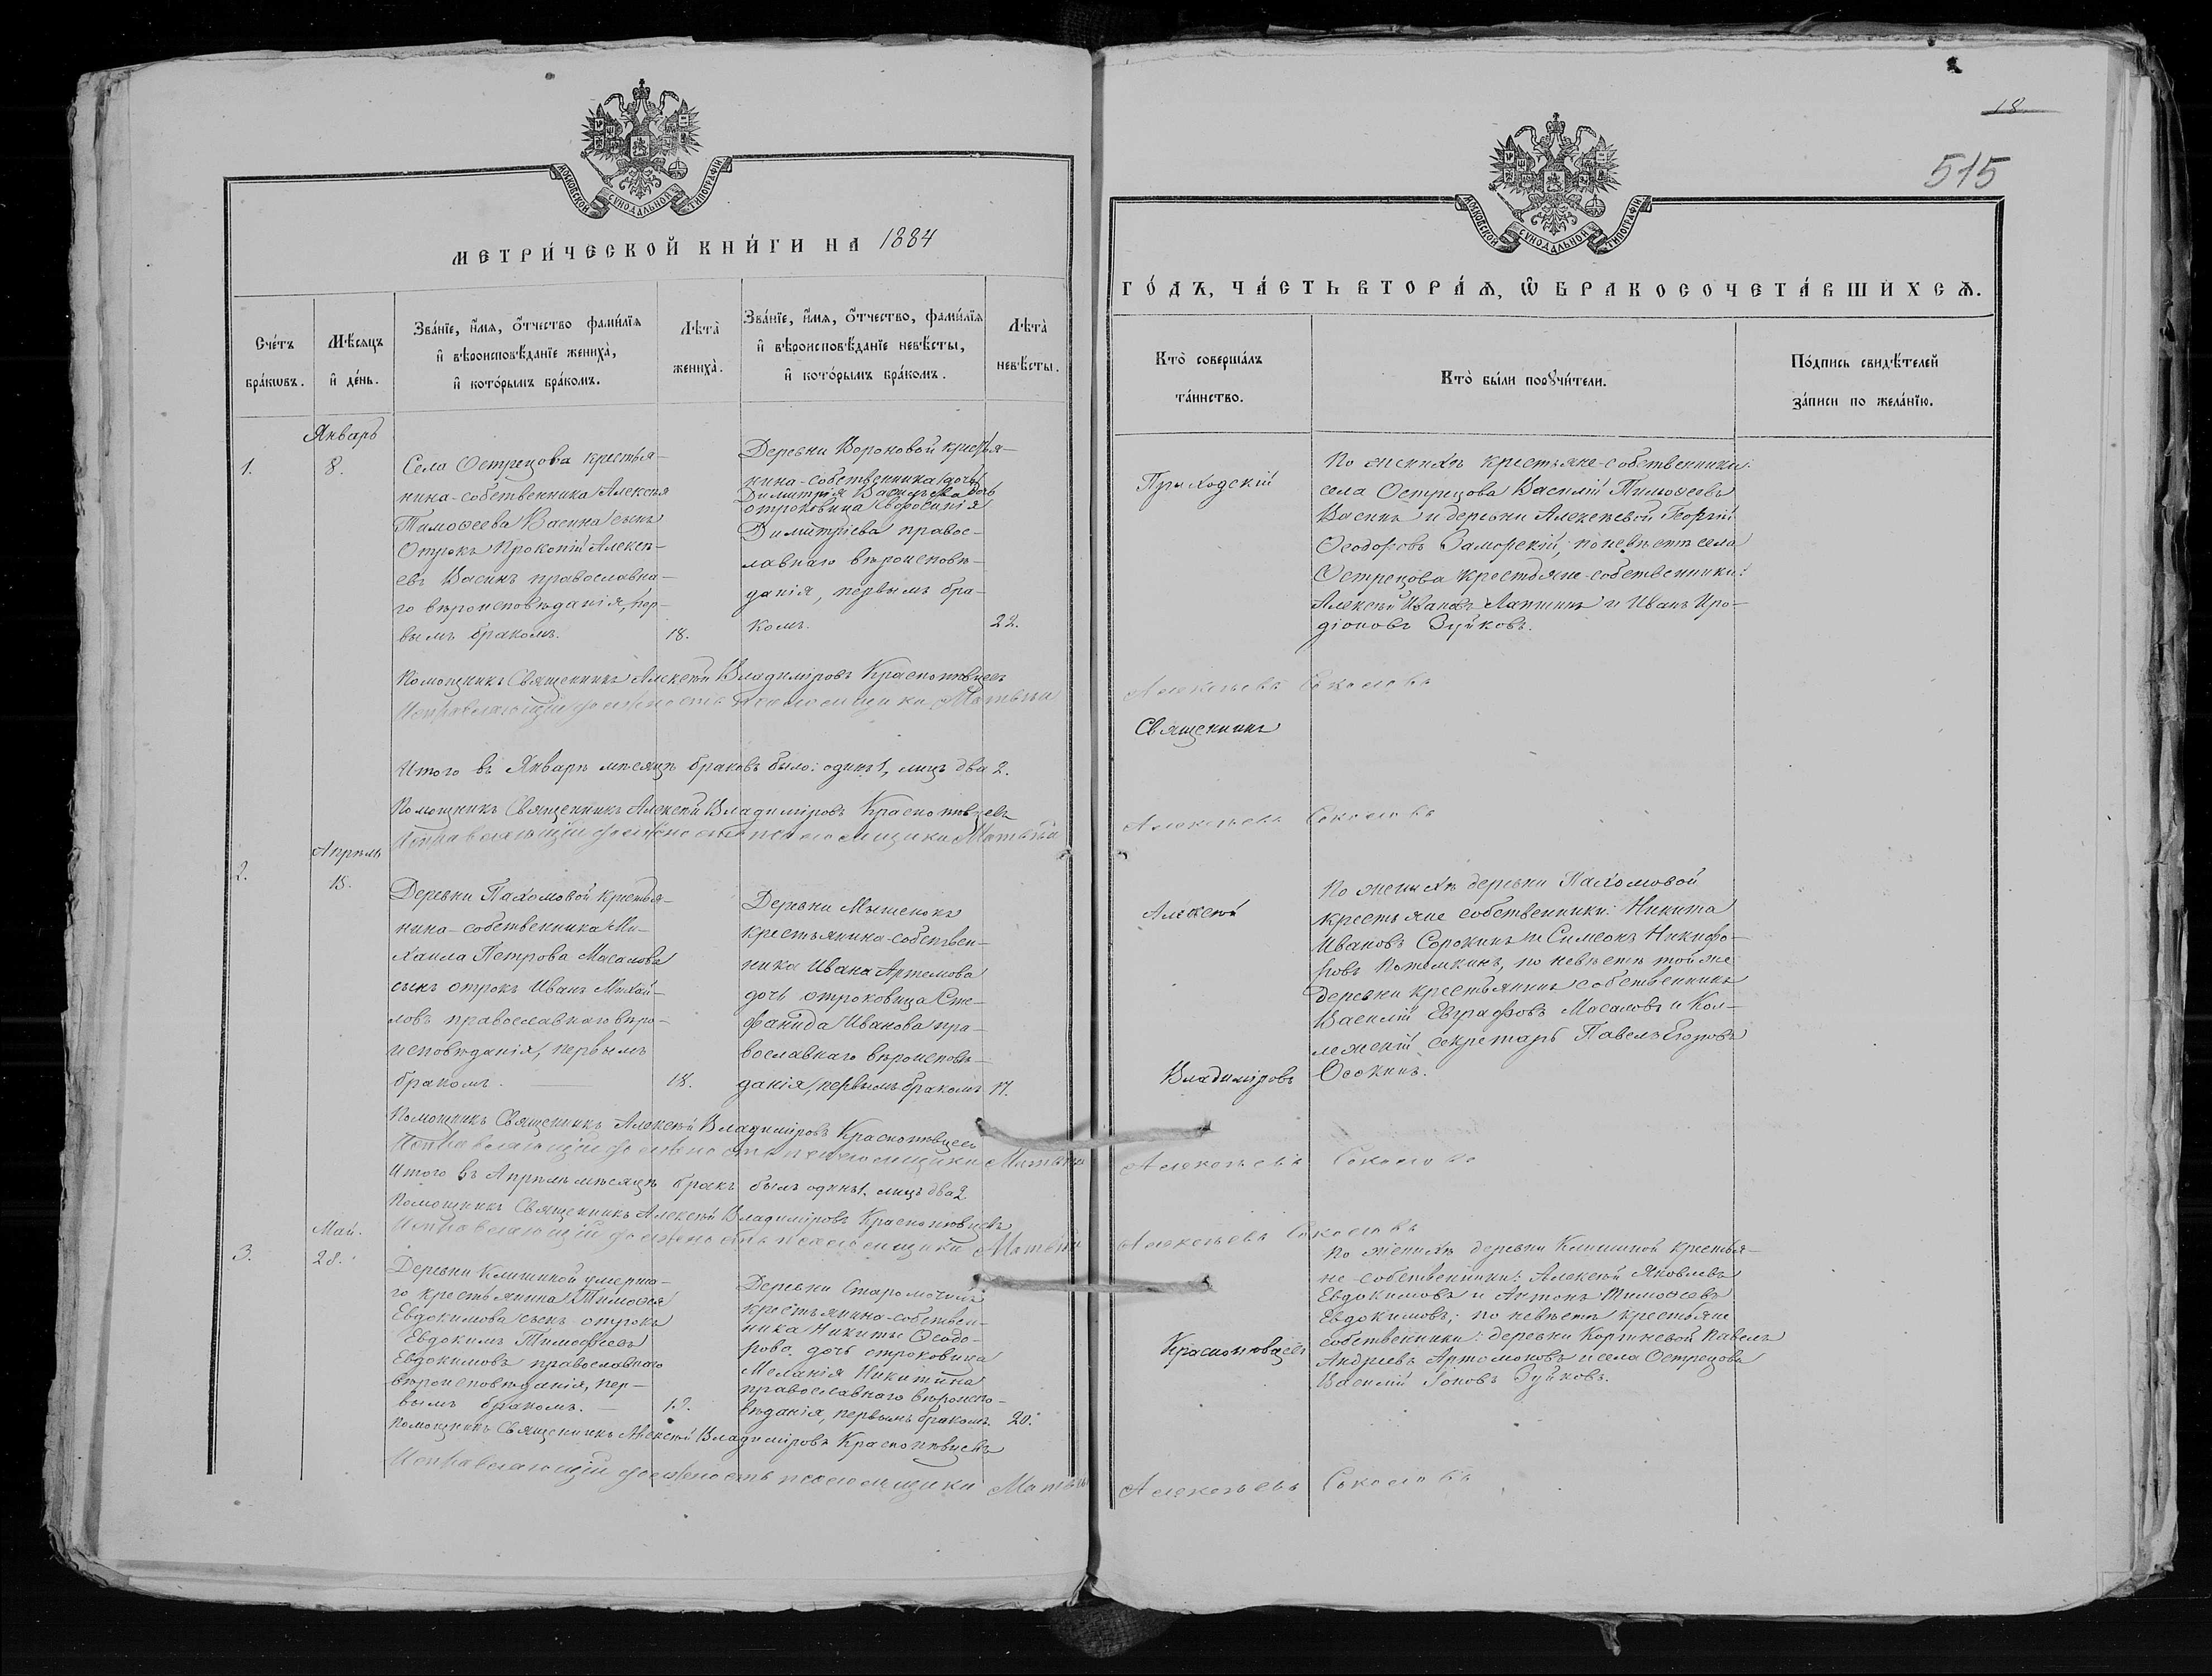 МОСКОВСКОЙ СѴНОДАЛЬНОЙ ТИПОГРАФІИ
МЕТРИ́ЧЕСКОЙ КНИ́ГИ НА 1884
Сче́тъ бра́кѡвъ.
Мѣ́сяцъ и҆ де́нь.
Зва́нїе, и҆́мя, ѻ҆́тчество фами́лїя
и҆ вѣроисповѣ́данїе жениха̀,
и҆ кото́рымъ бра́комъ.
Лѣта̀
жениха̀.
Зва́нїе, и҆́мя, ѻ҆́тчество, фами́лїя
и҆ вѣроисповѣ́данїе невѣ́сты,
и҆ кото́рымъ бра́комъ.
Лѣта̀
невѣ́сты.
Январь
1.
8.
Села Острецова крестья-
нина-собственника Алексѣя
Тимоѳеева Васина сынъ
Отрокъ Прокопій Алексѣ-
евъ Васинъ православна-
го вѣроисповѣданія, пер-
вымъ бракомъ.
18.
Деревни Вороновой крестья-
нина-собственника дочь
Димитрія Васильева дочь
отроковица Евфросинія
Димитріева правос-
лавнаго вѣроисповѣ-
данія, первымъ бра-
комъ.
22.
Помощникъ Священникъ Алексѣй Владиміровъ Краснопѣвцевъ
Исправляющій должность псаломщика Матвѣй
Итого въ Январѣ мѣсяцѣ браковъ было: одинъ 1, лицъ два 2.
Помощникъ Священникъ Алексѣй Владиміровъ Краснопѣвцевъ
Исправляющій должность псаломщика Матвѣй
Апрѣль
2.
15.
Деревни Пахомовой крестья-
нина-собственника Ми-
хаила Петрова Масалова
сынъ отрокъ Иванъ Михай-
ловъ православнаго вѣро-
исповѣданія, первымъ
бракомъ.
18.
Деревни Мышенокъ
крестьянина-собствен-
ника Ивана Артемова
дочь отроковица Сте-
фанида Иванова пра-
вославнаго вѣроисповѣ-
данія, первымъ бракомъ
17.
Помощникъ Священникъ Алексѣй Владиміровъ Краснопѣвцевъ
Исправляющій должность псаломщика Матвѣй
Итого въ Апрѣлѣ мѣсяцѣ бракъ былъ одинъ 1. лицъ два 2
Помощникъ Священникъ Алексѣй Владиміровъ Краснопѣвцевъ
Исправляющій должность псаломщика Матвѣй
Май.
3.
28.
Деревни Клишиной умерша-
го крестьянина Тимоѳея
Евдокимова сынъ отрокъ
Евдокимъ Тимофѣевъ
Евдокимовъ православнаго
вѣроисповѣданія, пер-
вымъ бракомъ.
Деревни
крестьянина-собствен-
ника Никиты Ѳеодо-
рова дочь отроковица
Меланія Никитина
православнаго вѣроиспо-
вѣданія, первымъ бракомъ.
20.
Помощникъ Священникъ Алексѣй Владиміровъ Краснопѣвцевъ
Исправляющій должность псаломщика Матвѣй
18
515
МОСКОВСКОЙ СѴНОДАЛЬНОЙ ТИПОГРАФІИ
ГО́ДЪ, ЧА́СТЬ ВТОРА́Ѧ, Ѡ҆ БРАКОСОЧЕТА́ВШИХСѦ.
Кто̀ соверша́лъ
та́инство.
Кто̀ бы́ли порꙋчи́тели.
По́дпись свидѣ́телей
за́писи по жела́нїю.
Приходскій
По женихѣ крестьяне-собственники:
села Острецова Василій Тимоѳеевъ
Васинъ и деревни Алексѣевой Георгій
Ѳеодоровъ Заморскій; по невѣстѣ села
Острецова крестьяне-собственники:
Алексѣй Ивановъ Лапшинъ и Иванъ Иро-
діоновъ Зуйковъ.
Алексѣевъ Соколовъ
Священникъ
Алексѣевъ Соколовъ
Алексѣй
По женихѣ деревни Пахомовой
крестьяне собственники: Никита
Ивановъ Сорокинъ и Симеонъ Никифо-
ровъ Потемкинъ, по невѣстѣ той же
деревни крестьянинъ собственникъ
Василій Евграфовъ Масаловъ и Кол-
лежскій секретарь Павелъ Егоровъ
Осокинъ.
Владиміровъ
Алексѣевъ Соколовъ
Алексѣевъ Соколовъ
По женихѣ деревни Клишиной крестья-
не-собственники: Алексѣй Яковлевъ
Евдокимовъ и Антонъ Тимоѳеевъ
Евдокимовъ; по невѣстѣ крестьяне
собственники: деревни Коршневой Павелъ
Андреевъ Артамоновъ и села Острецова
Василій Іоновъ Зуйковъ.
Краснопѣвцевъ
Алексѣевъ Соколовъ